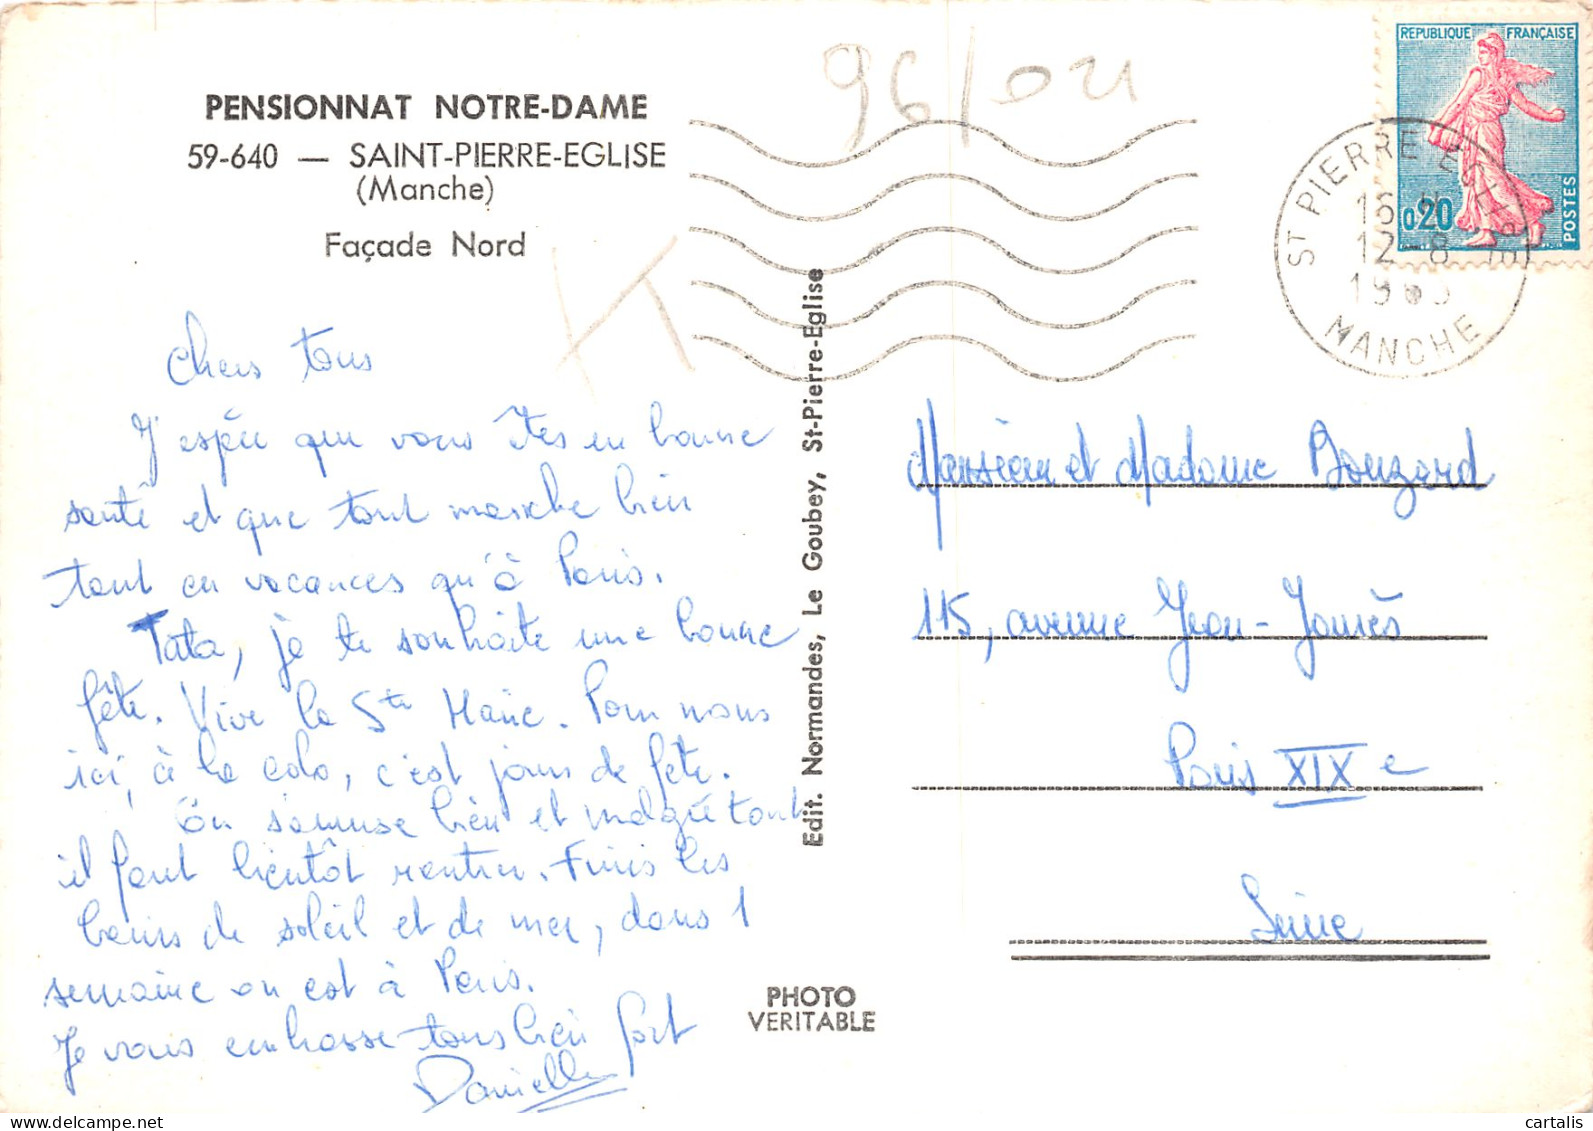 PENSIONNAT NOTRE-DAME
59-640 — SAINT-PIERRE-EGLISE
(Manche)
Façade Nord
96/021
Chers tous
J'espère que vous êtes en bonne
santé et que tout marche bien
tant en vacances qu'à Paris.
Tata, je te souhaite une bonne
fête. Vive la Ste Marie. Pour nous
ici, à la colo, c'est jours de fête.
On s'amuse bien et malgré tout
il faut bientôt rentrer. Finis les
bains de soleil et de mer, dans 1
semaine on est à Paris.
Je vous embrasse tous bien fort
Danielle
Edit. Normandes, Le Goubey, St-Pierre-Eglise
PHOTO
VERITABLE
REPUBLIQUE FRANÇAISE
0,20
POSTES
ST PIERRE EGLISE
16 H
12-8
MANCHE
Monsieur et Madame Bouzard
115, avenue Jean-Jaurès
Paris XIXe
Seine
cartalis
www.delcampe.net